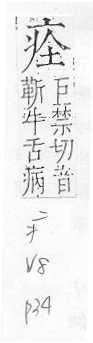 痊
巨禁切音
靳牛舌病
V8
p34